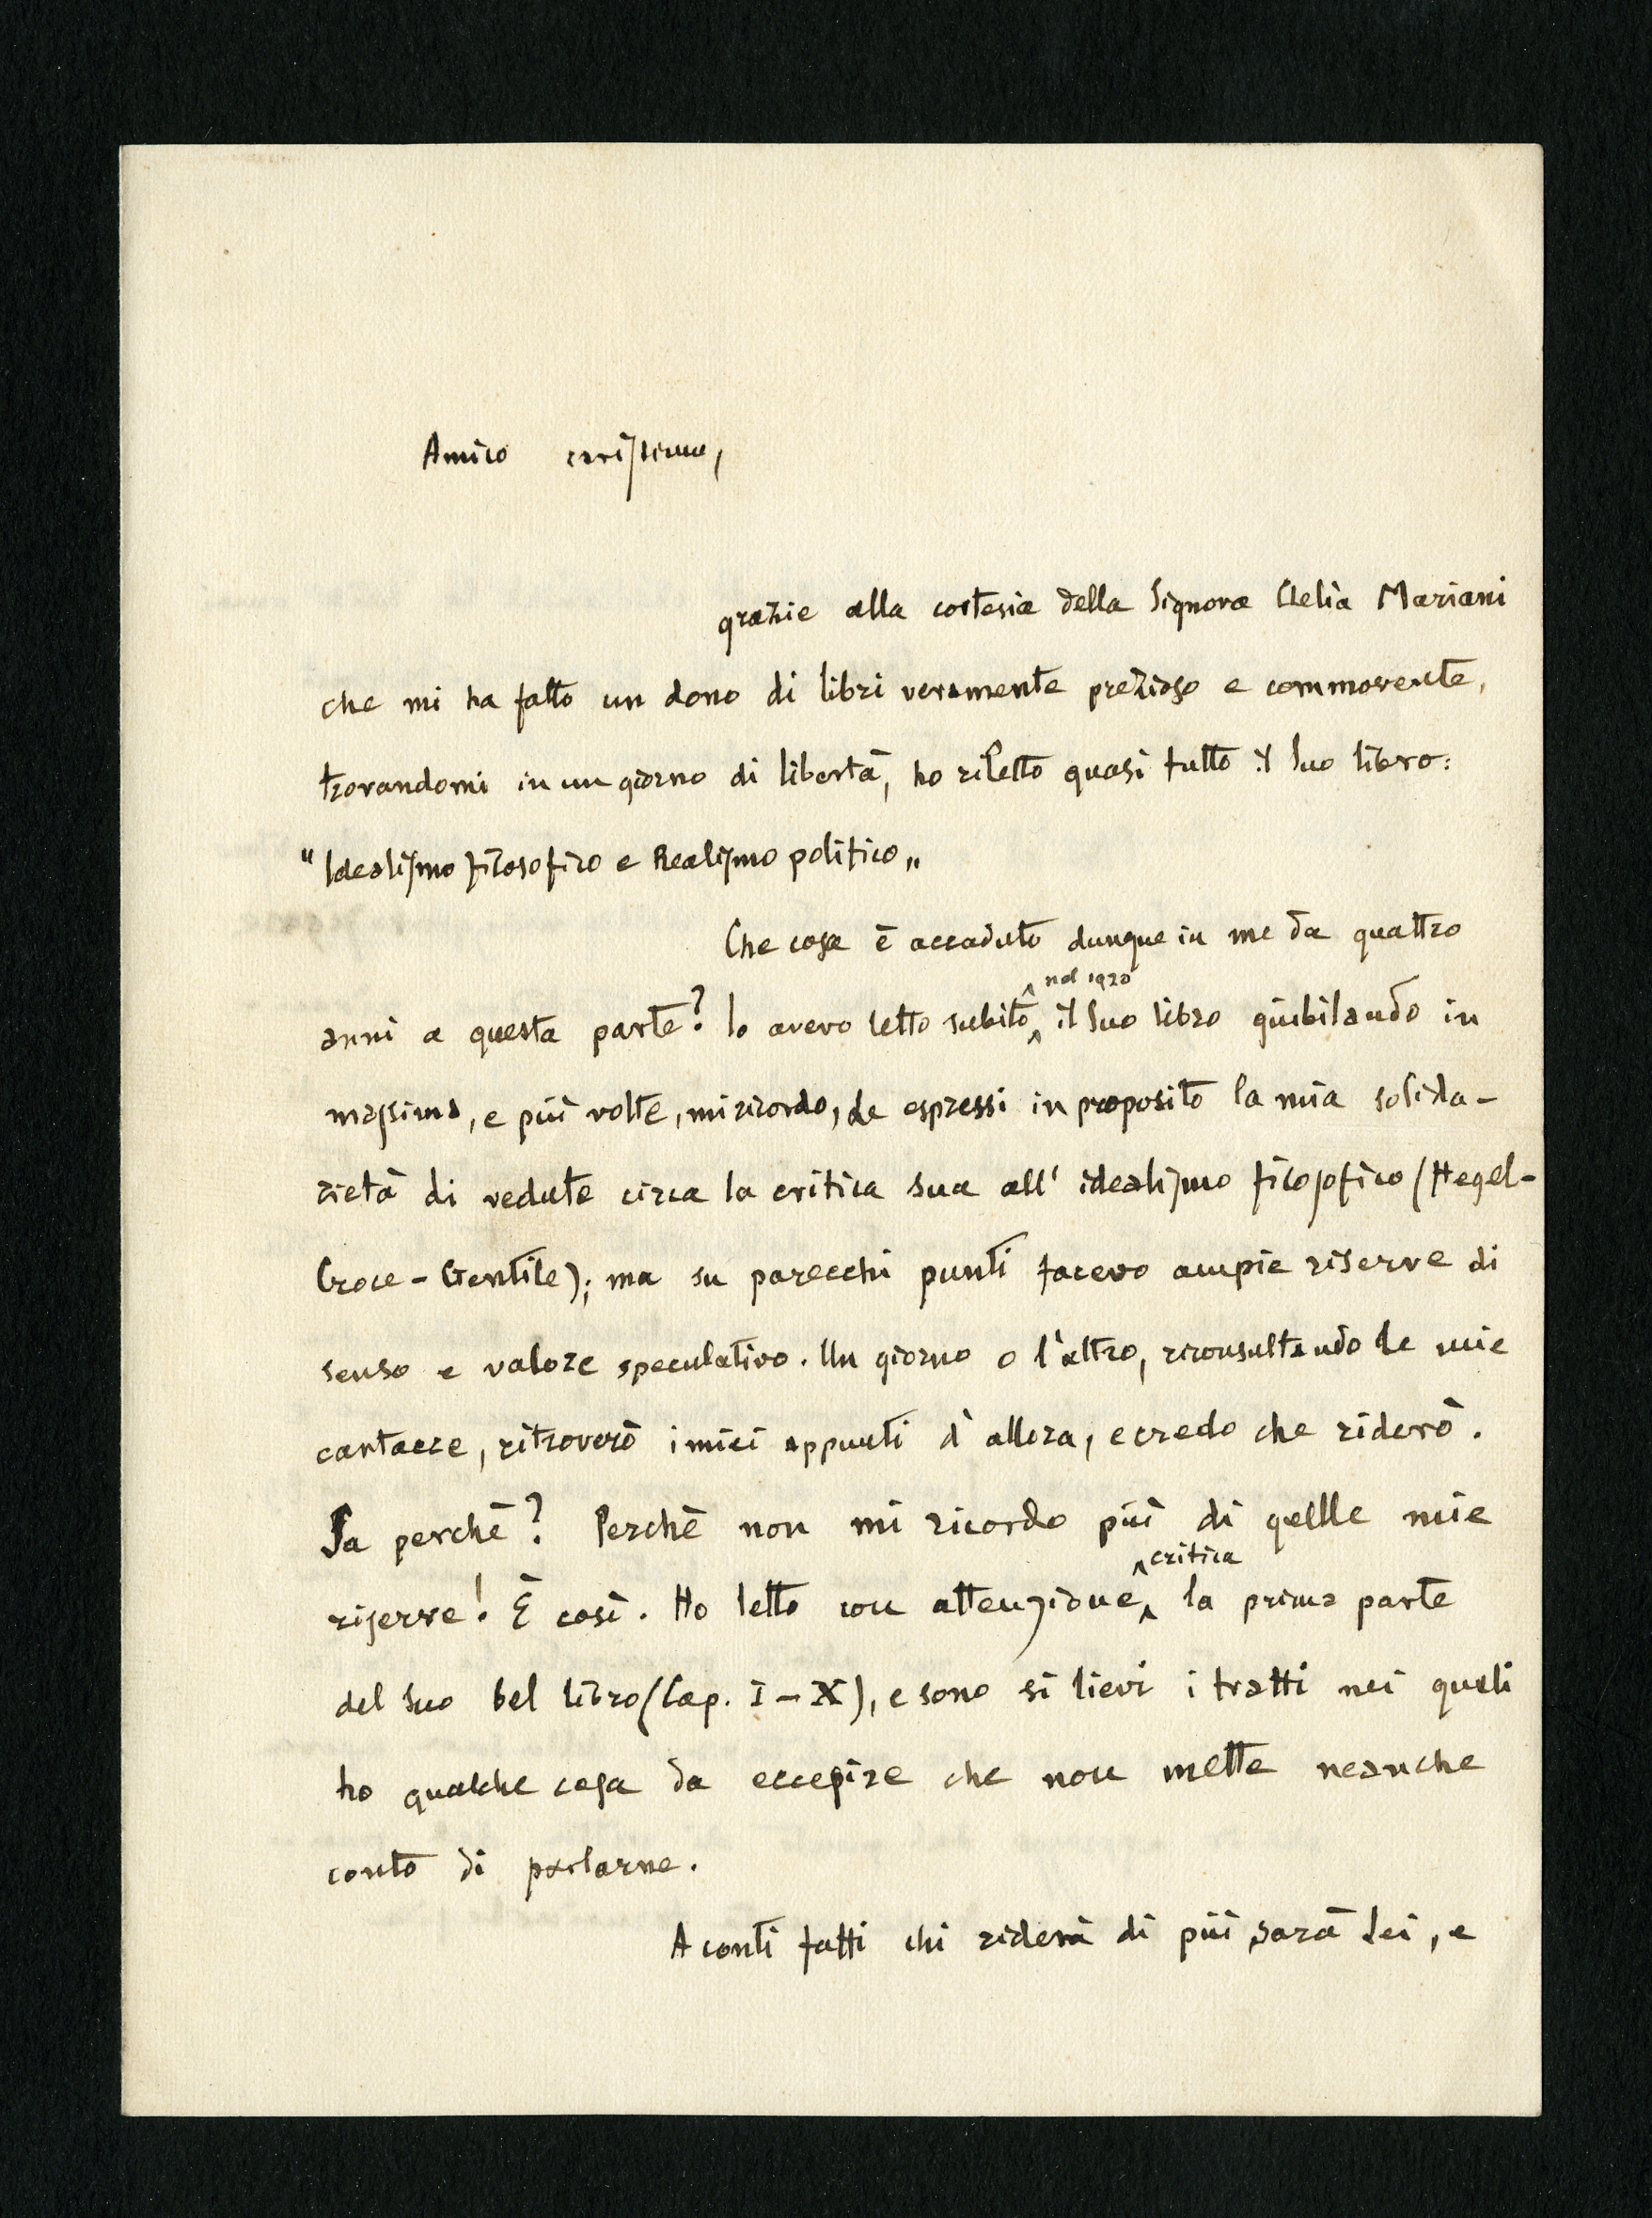 Amico carissimo,
grazie alla cortesia della Signora Clelia Mariani
che mi ha fatto un dono di libri veramente prezioso e commovente,
trovandomi in un giorno di libertà, ho riletto quasi tutto il Suo libro:
"Idealismo filosofico e Realismo politico„
Che cosa è accaduto dunque in me da quattro
nel 1920
anni a questa parte? Io avevo letto subito il Suo libro giubilando in
massima, e più volte, mi ricordo, Le espressi in proposito la mia solida-
rietà di vedute circa la critica Sua all' idealismo filosofico (Hegel-
Croce-Gentile); ma su parecchi punti facevo ampie riserve di
senso e valore speculativo. Un giorno o l'altro, riconsultando le mie
cartacce, ritroverò i miei appunti d'allora, e credo che riderò.
Sa perchè? Perchè non mi ricordo più di quelle mie
critica
riserve! È così. Ho letto con attenzione la prima parte
del Suo bel libro (Cap. I-X), e sono sì lievi i tratti nei quali
ho qualche cosa da eccepire che non mette neanche
conto di parlarne.
A conti fatti chi riderà di più sarà Lei, e